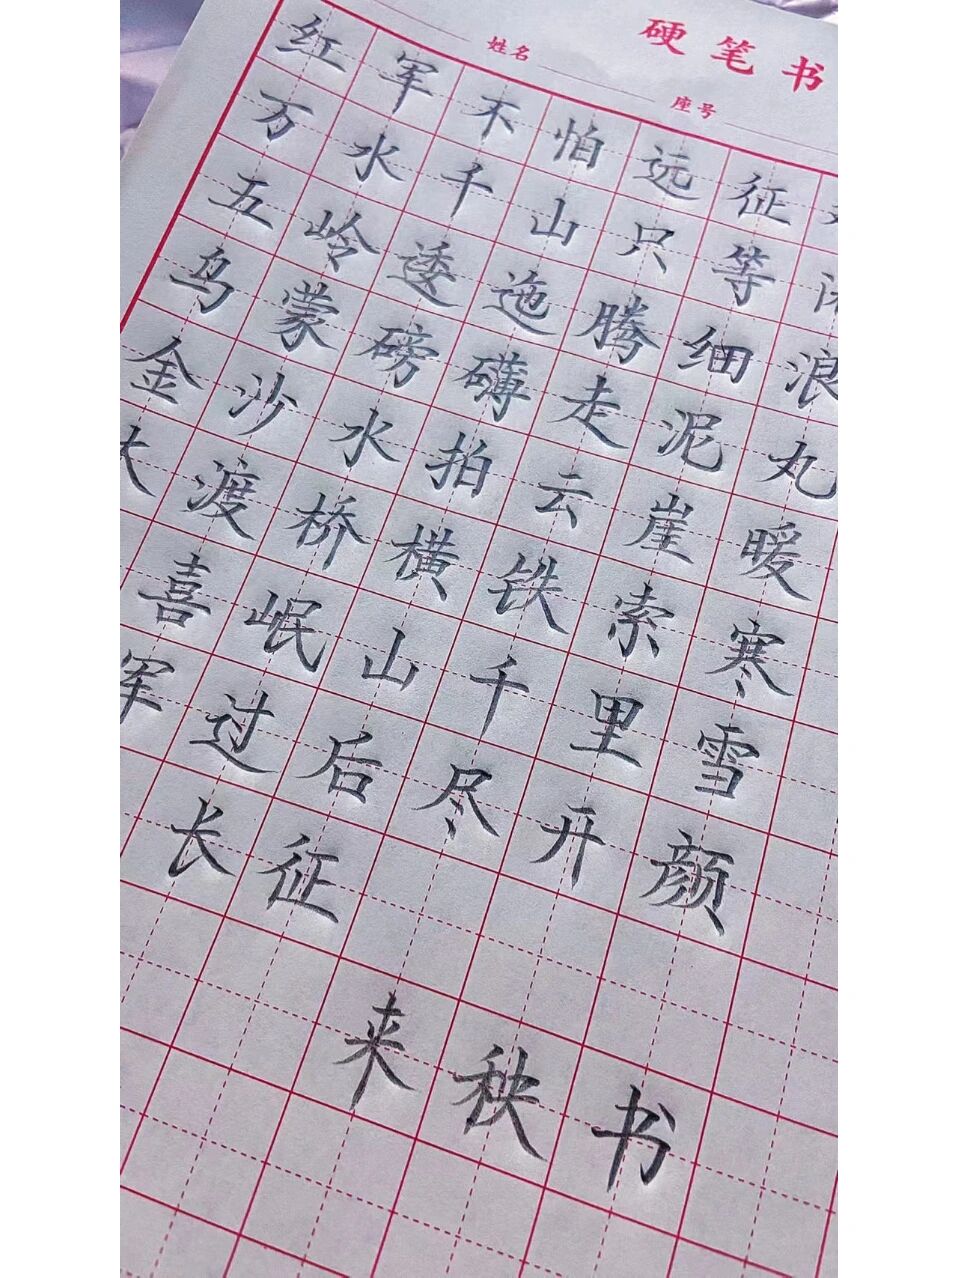 硬笔书
姓名 座号
红军不怕远征
万水千山只等
五岭逶迤腾细浪
乌蒙磅礴走泥丸
金沙水拍云崖暖
大渡桥横铁索寒
喜岷山千里雪
军过后尽开颜
长征
来秧书